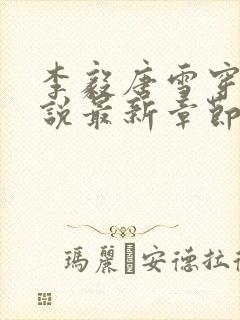 李毅唐雪穿
說最新章節
瑪麗安德拉